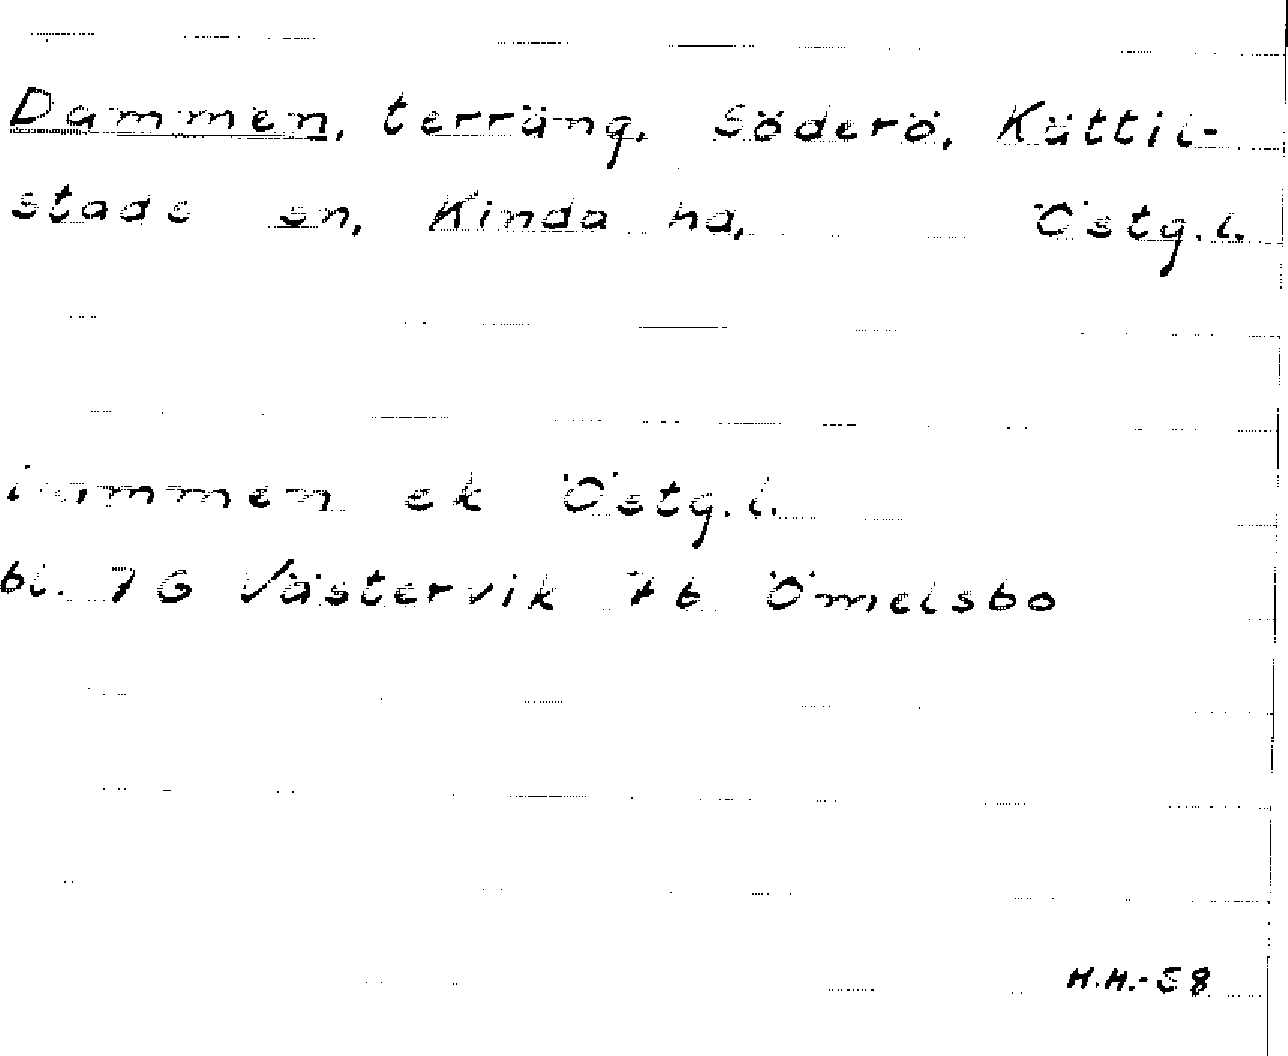 Dammen, terräng, Söderö, Kättil-
stads sn, Kinda hd, Östg.l.
Dammen ek Östg.l.
bl. 7 G Västervik 7 b Ömelsbo
H.H.-58